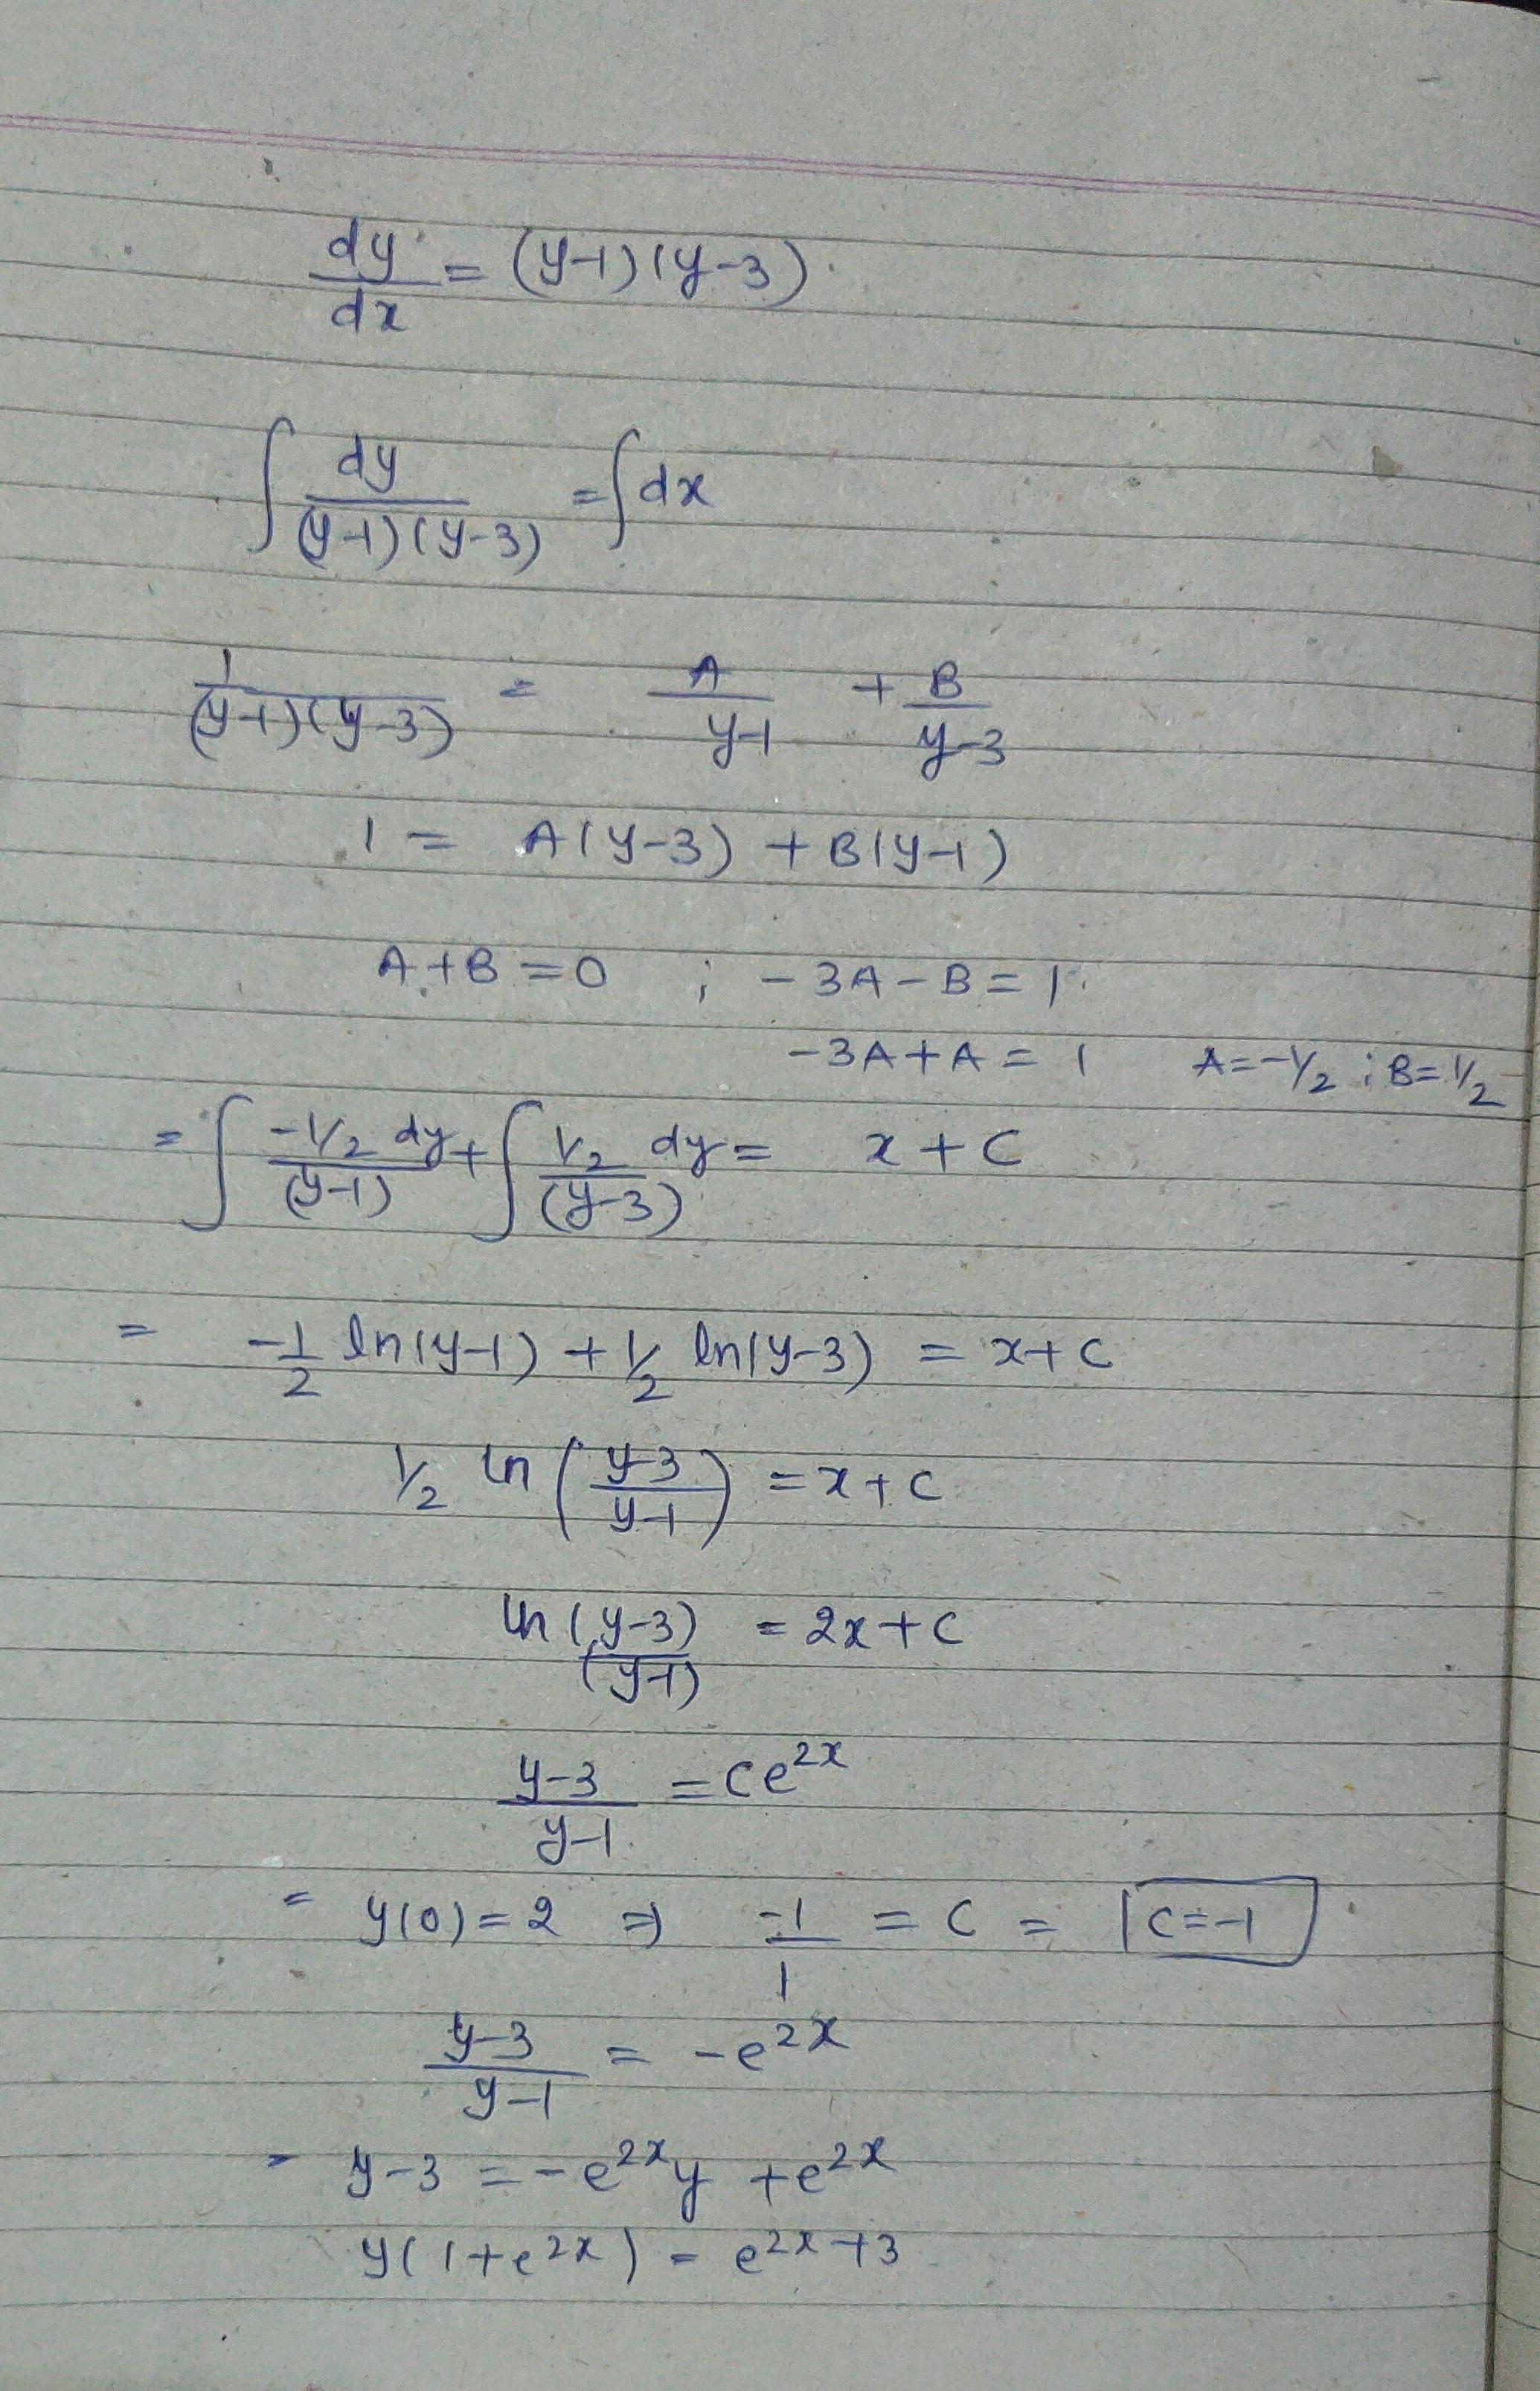 dy/dx = (y-1)(y-3)
∫ dy/(y-1)(y-3) = ∫dx
1/(y-1)(y-3) = A/y-1 + B/y-3
1 = A(y-3) + B(y-1)
A+B=0 ; -3A-B=1
-3A+A=1 A=-1/2 ; B=1/2
= ∫ -1/2 dy/(y-1) + ∫ 1/2 dy/(y-3) = x+C
= -1/2 ln(y-1) + 1/2 ln(y-3) = x+C
1/2 ln (y-3/y-1) = x+C
ln (y-3)/(y-1) = 2x+C
y-3/y-1 = Ce^2x
= y(0)=2 ⇒ -1/1 = C = C=-1
y-3/y-1 = -e^2x
= y-3 = -e^2x y +e^2x
y(1+e^2x) = e^2x+3